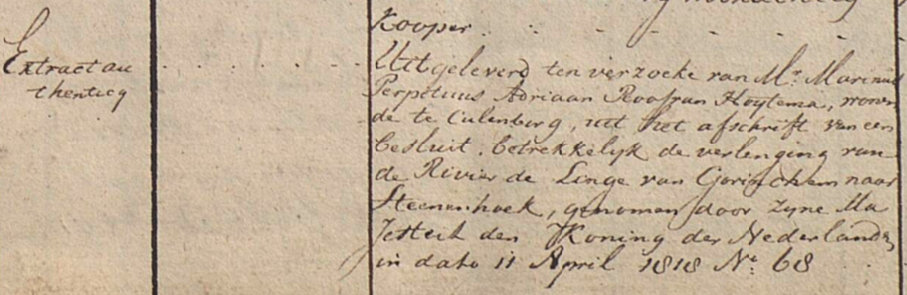 Kooper
Extract au
thentiecq
Uitgeleverd ten verzoeke van Mr. Marinus
Perpetuus Adriaan Roos van Hoytema, wonen
de te Culenborg, uit het afschrift van een
besluit, betrekkelyk de verlenging van
de Rivier de Linge van Gorinchem naar
Steenenhoek, genomen door Zyne Ma
Jesteit den Koning der Nederlanden
in dato 11 April 1818 No. 68